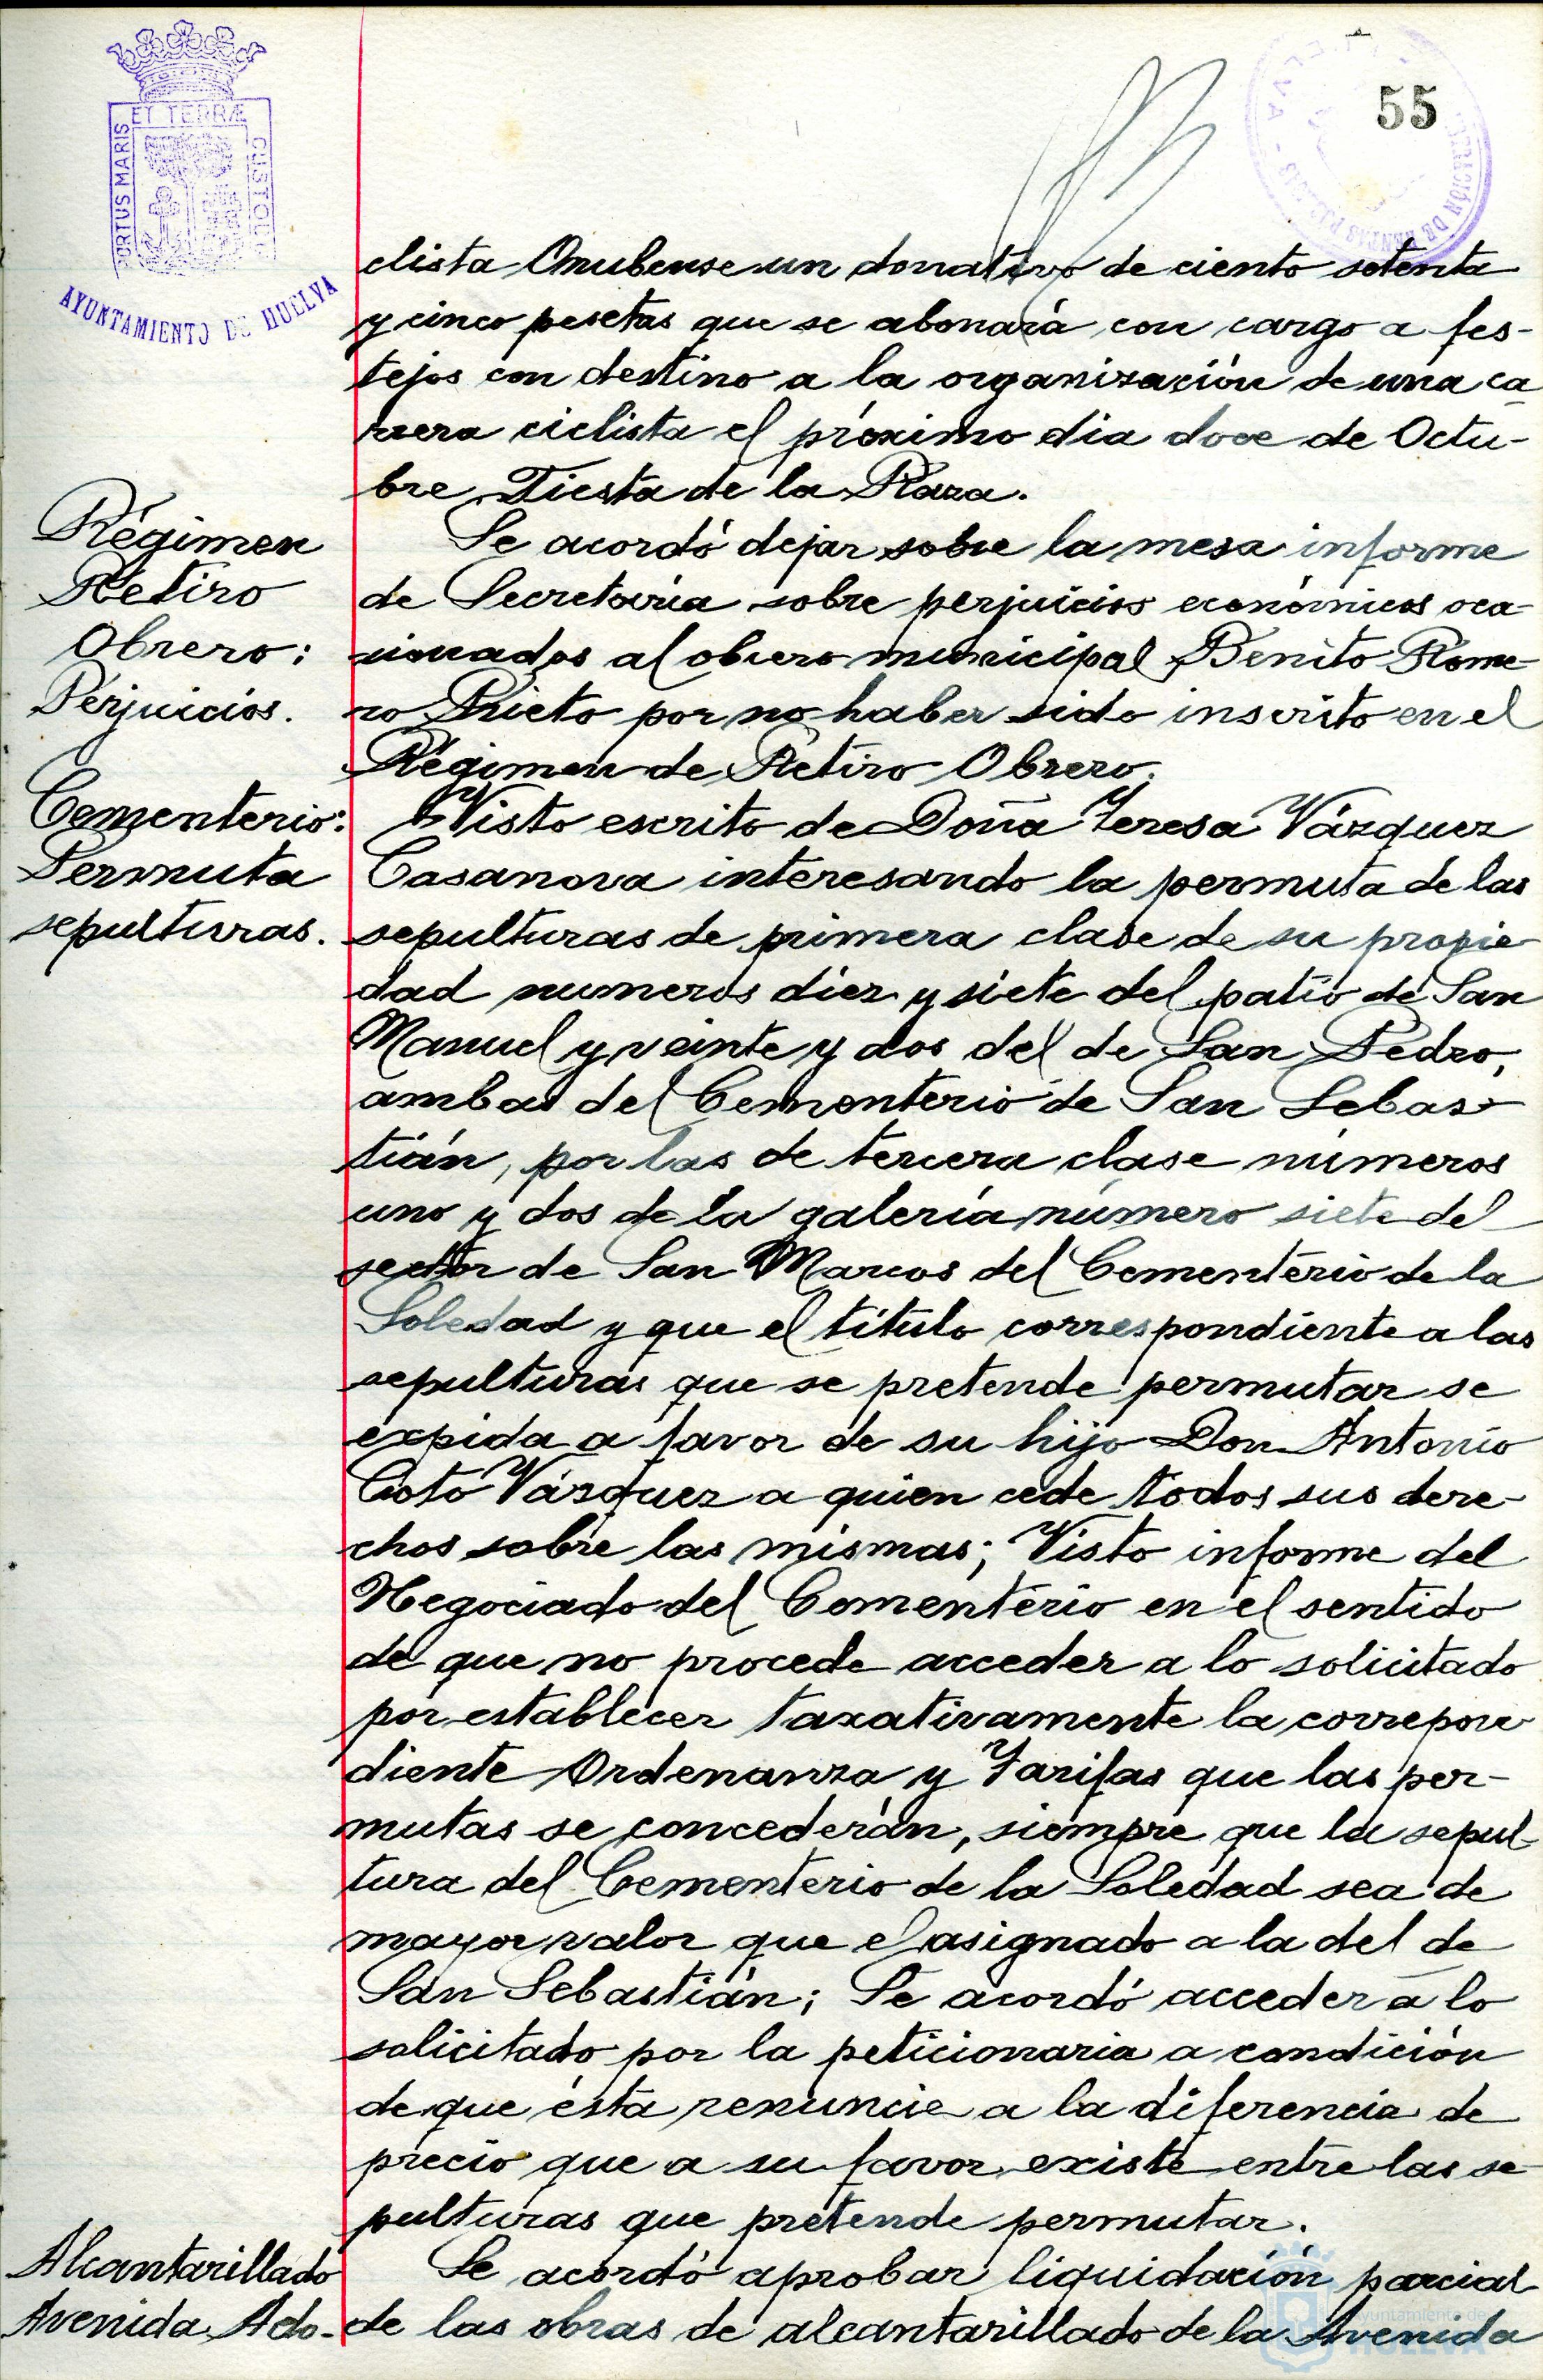 55
PORTUS MARIS
ET TERRÆ
CUSTODIA
AYUNTAMIENTO DE HUELVA
clista Onubense un donativo de ciento setenta
y cinco pesetas que se abonará con cargo a fes-
tejos con destino a la organización de una ca
rrera ciclista el próximo dia doce de Octu-
bre, Fiesta de la Raza.
Régimen
Retiro
Obrero:
Perjuicios.
Se acordó dejar sobre la mesa informe
de Secretaría sobre perjuicios económicos oca-
sionados al obrero municipal Benito Rome-
ro Prieto por no haber sido inscrito en el
Régimen de Retiro Obrero.
Cementerio:
Permuta
sepulturas.
Visto escrito de Doña Teresa Vázquez
Casanova interesando la permuta de las
sepulturas de primera clase de su propie-
dad numeros diez y siete del patio de San
Manuel y veinte y dos del de San Pedro,
ambas del Cementerio de San Sebas-
tián, por las de tercera clase números
uno y dos de la galería número siete del
sector de San Marcos del Cementerio de la
Soledad y que el título correspondiente a las
sepulturas que se pretende permutar se
expida a favor de su hijo Don Antonio
Coto Vázquez a quien cede todos sus dere-
chos sobre las mismas; Visto informe del
Negociado del Cementerio en el sentido
de que no procede acceder a lo solicitado
por establecer taxativamente la correpon-
diente Ordenanza y Tarifas que las per-
mutas se concederán, siempre que la sepul-
tura del Cementerio de la Soledad sea de
mayor valor que el asignado a la del de
San Sebastián; Se acordó acceder a lo
solicitado por la peticionaria a condición
de que ésta renuncie a la diferencia de
precio que a su favor existe entre las se-
pulturas que pretende permutar.
Alcantarillado
Avenida Ado-
Se acordó aprobar liquidación parcial
de las obras de alcantarillado de la Avenida
Ayuntamiento de
HUELVA